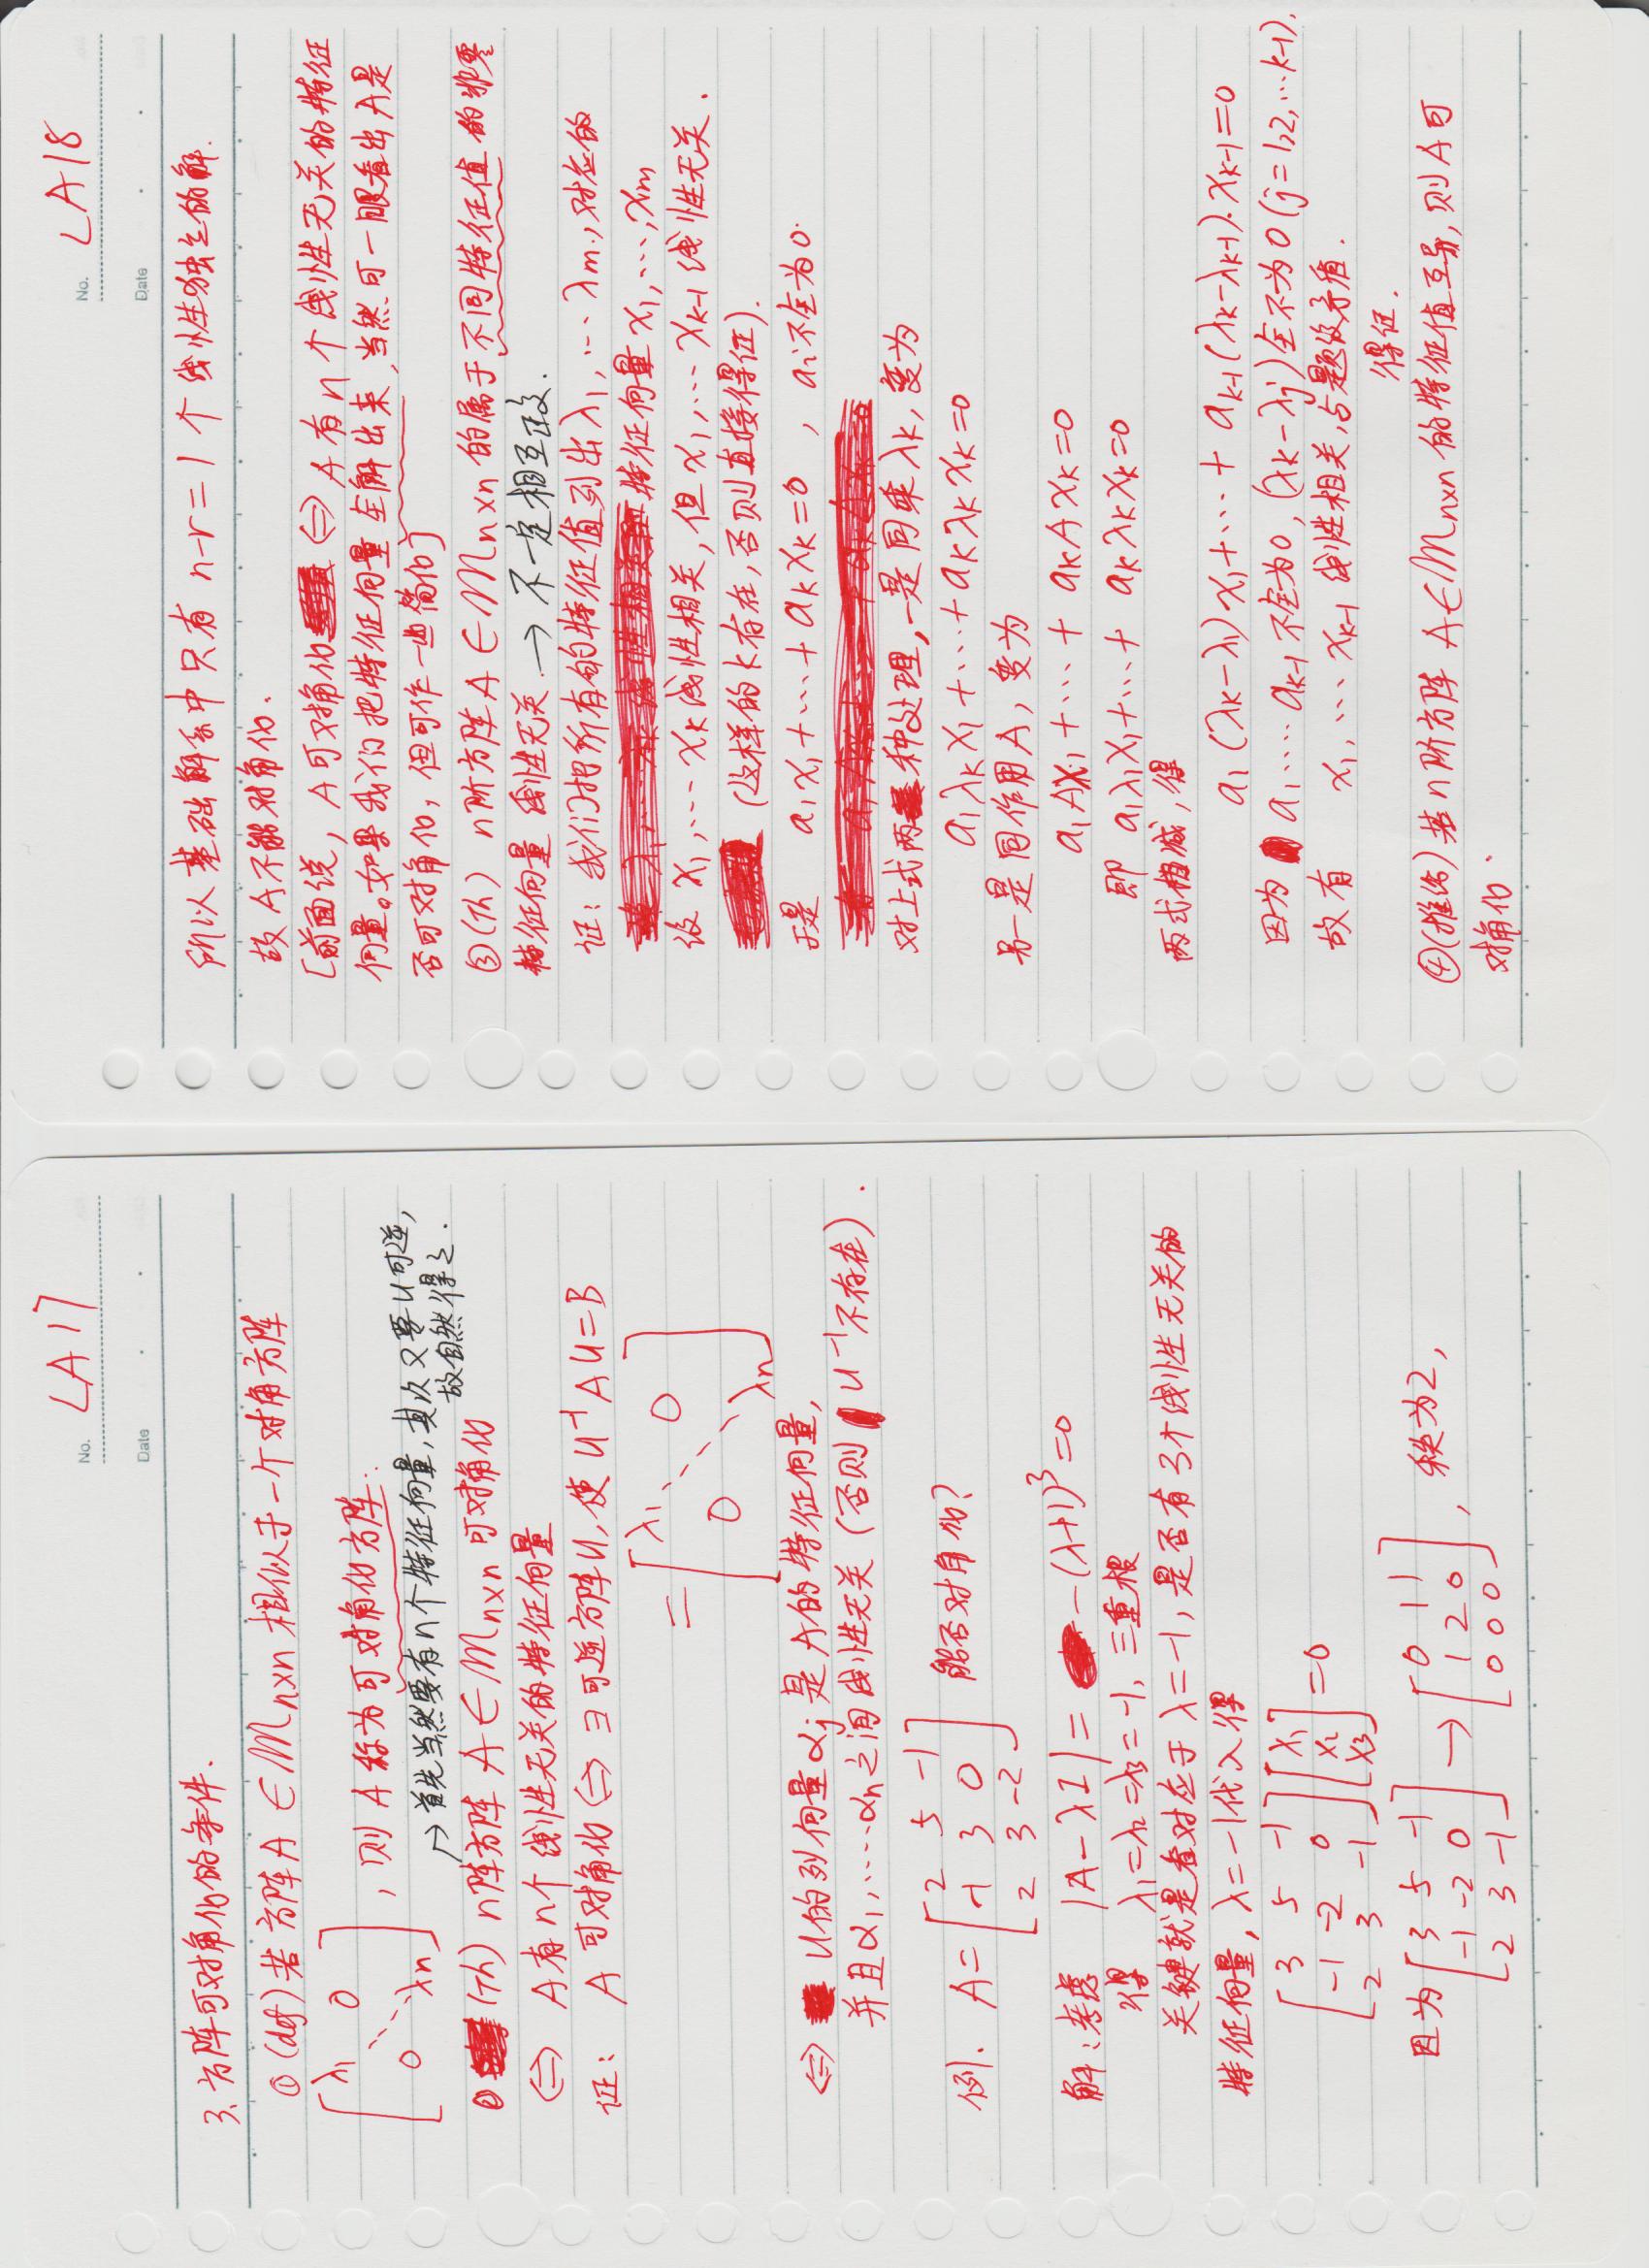 No. LA17
Date
3、方阵可对角化的条件.
①(def)若方阵A ∈ Mn×n 相似于一个对角方阵
[λ1 0
0 λn] , 则 A 称为可对角化方阵.
→首先当然要有n个特征向量,其次又要U可逆,
故自然得之.
② (Th) n阵方阵 A ∈ Mn×n 可对角化
⇔ A有n个线性无关的特征向量
证: A 可对角化 ⇔ ∃可逆方阵U, 使 U⁻¹AU=B
= [λ1 0
0 λn]
⇔ U的列向量αj是A的特征向量,
并且α1,……αn之间线性无关(否则 U⁻¹不存在).
例. A= [2 5 -1
-1 3 0
2 3 -2] 能否对角化?
解:考虑 |A-λI| = -(λ+1)³=0
得 λ1=λ2=λ3=-1, 三重根
关键就是看对应于λ=-1,是否有3个线性无关的
特征向量, λ=-1代入得
[3 5 -1
-1 -2 0
2 3 -1] [x1
x2
x3] =0
因为 [3 5 -1
-1 -2 0
2 3 -1] → [0 1 1
1 2 0
0 0 0] , 秩为2,
No. LA18
Date
所以基础解系中只有 n-r=1 个线性独立的解.
故A不能对角化.
[前面说, A可对角化 ⇔ A有n个线性无关的特征
向量。如果我们把特征向量全解出来,当然可一眼看出A是
否可对角化,但可作一些简化]
③(Th) n阶方阵A ∈ Mn×n 的属于不同特征值的非零
特征向量 线性无关 → 不一定相互正交.
证: 我们把所有的特征值列出λ1,…λm,对应的
特征向量 x1,…,xm
设 x1,…xk线性相关,但x1,…xk-1 线性无关.
(这样的k存在,否则直接得证).
于是 a1x1+…+akxk=0 , ai不全为0.
对上式两种处理,一是同乘λk,变为
a1λkx1+…+akλkxk=0
另一是同作用A,变为
a1Ax1+…+ akAxk=0
即 a1λ1x1+…+ akλkxk=0
两式相减,得
a1(λk-λ1)x1+…+ ak-1(λk-λk-1)·xk-1=0
因为 a1……ak-1不全为0,(λk-λj)全不为0(j=1,2,…k-1),
故有 x1,…xk-1 线性相关,与题设矛盾.
得证.
④(推论)若n阶方阵 A∈Mn×n 的特征值互异,则A可
对角化.